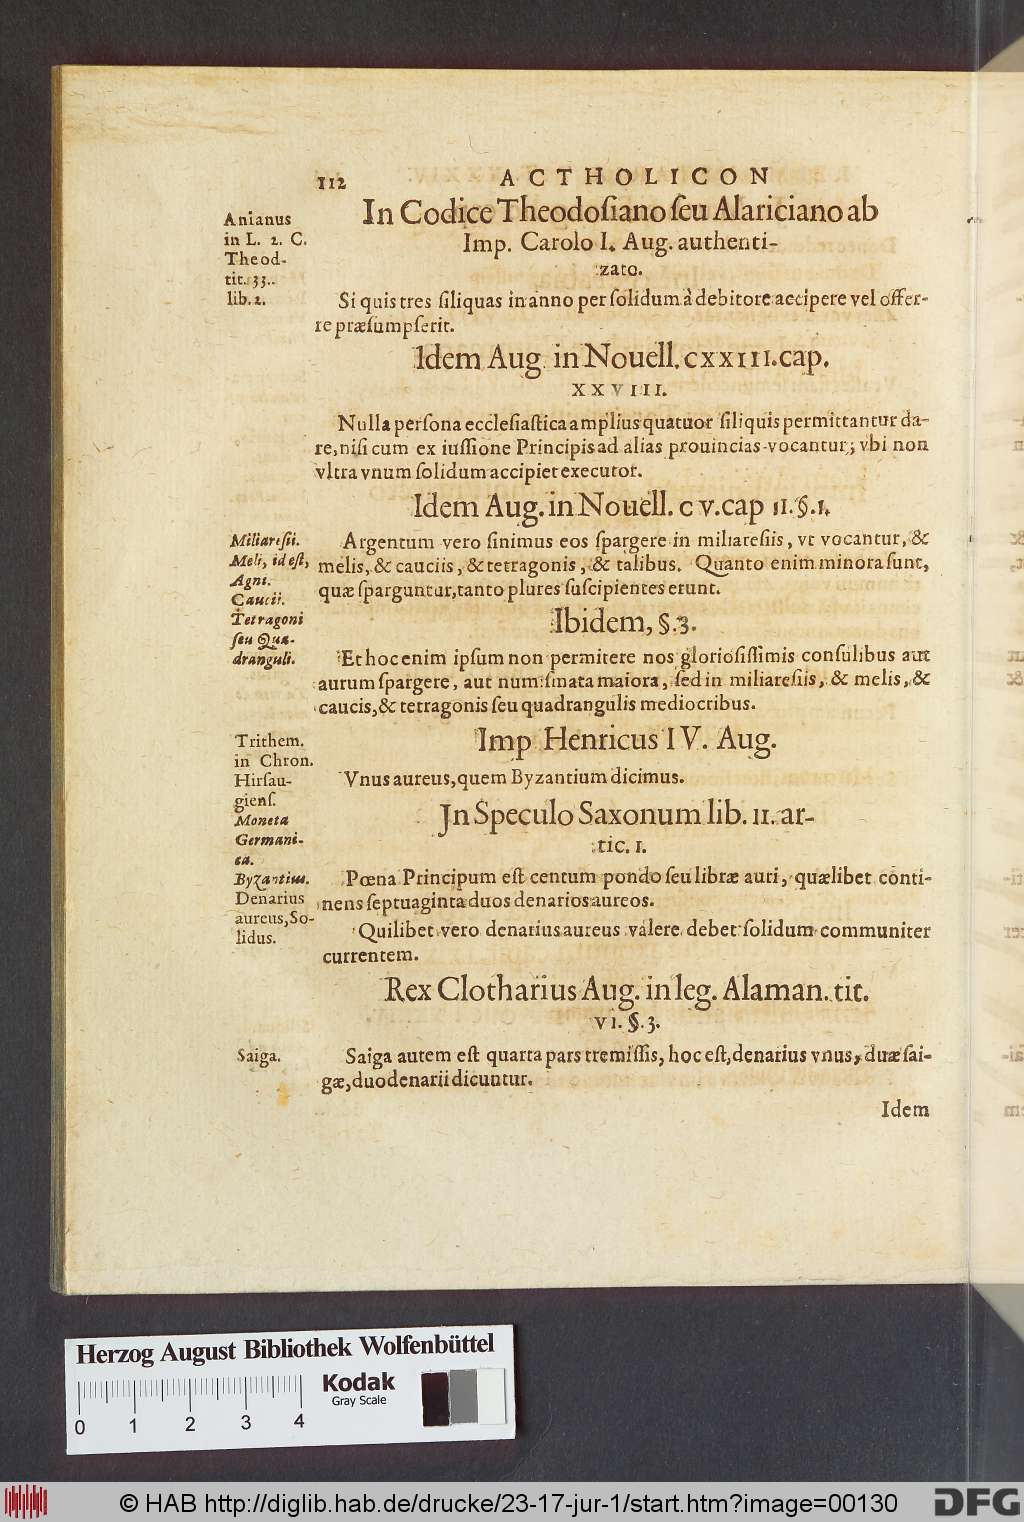 112 ACTHOLICON
In Codice Theodosiano seu Alariciano ab
Imp. Carolo I. Aug. authenti-
zato.
Anianus
in L. 2. C.
Theod-
tit. 33..
lib. 2.
Si quis tres siliquas in anno per solidum à debitore accipere vel offer-
re præsumpserit.
Idem Aug. in Nouell. CXXIII. cap.
XXVIII.
Nulla persona ecclesiastica amplius quatuor siliquis permittantur da-
re, nisi cum ex iussione Principis ad alias prouincias vocantur; vbi non
vltra vnum solidum accipiet executor.
Idem Aug. in Nouell. CV. cap II. §. I.
Miliaresii.
Meli, id est,
Agni.
Caucii.
Tetragoni
seu Qua-
dranguli.
Argentum vero sinimus eos spargere in miliaresiis, vt vocantur, &
melis, & cauciis, & tetragonis, & talibus. Quanto enim minora sunt,
quæ sparguntur, tanto plures suscipientes erunt.
Ibidem, §. 3.
Et hoc enim ipsum non permitere nos gloriosissimis consulibus aut
aurum spargere, aut numismata maiora, sed in miliaresiis, & melis, &
caucis, & tetragonis seu quadrangulis mediocribus.
Imp Henricus IV. Aug.
Trithem.
in Chron.
Hirsau-
giens.
Moneta
Germani-
ca.
Byzantius.
Denarius
aureus, So-
lidus.
Vnus aureus, quem Byzantium dicimus.
Jn Speculo Saxonum lib. II. ar-
tic. I.
Pœna Principum est centum pondo seu libræ auri, quælibet conti-
nens septuaginta duos denarios aureos.
Quilibet vero denarius aureus valere debet solidum communiter
currentem.
Rex Clotharius Aug. in leg. Alaman. tit.
VI. §. 3.
Saiga.
Saiga autem est quarta pars tremissis, hoc est, denarius vnus, duæ sai-
gæ, duo denarii dicuntur.
Idem
Herzog August Bibliothek Wolfenbüttel
Kodak
Gray Scale
0 1 2 3 4
© HAB http://diglib.hab.de/drucke/23-17-jur-1/start.htm?image=00130
DFG